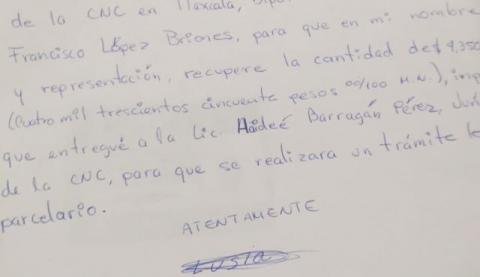 de la CNC en Tlaxcala, Dip
Francisco López Briones, para que en mi nombre
y representación, recupere la cantidad de $9,350
(Cuatro mil trescientos cincuenta pesos 00/100 M.N.), imp
que entregué a la Lic. Haideé Barragán Pérez, Jurí
de la CNC, para que se realizara un trámite le
parcelario.
ATENTAMENTE